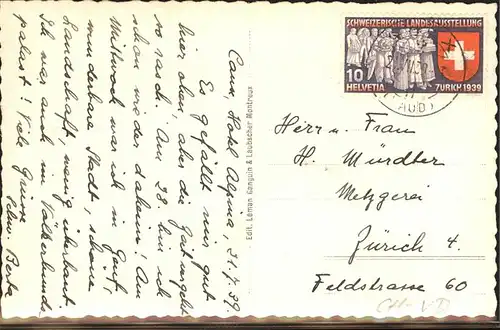 Caux, Hotel Alpina, 21.7.39.
Es gefällt mir gut
hier oben, aber die Zeit geht
so rasch. Am 28. bin ich
schon wieder daheim! Am
Mittwoch war ich in Genf,
wunderbare Stadt, schöne
Landschaft, wenig überbaut.
Ich war auch im Völkerbunds-
palast! Viele Grüsse
Berta
Edit. Léman Ganguin & Laubscher Montreux
SCHWEIZERISCHE LANDESAUSSTELLUNG
10
HELVETIA ZÜRICH 1939
(VAUD)
Herr u. Frau
H. Mürdter
Metzgerei
Zürich 4.
Feldstrasse 60
CH-VD